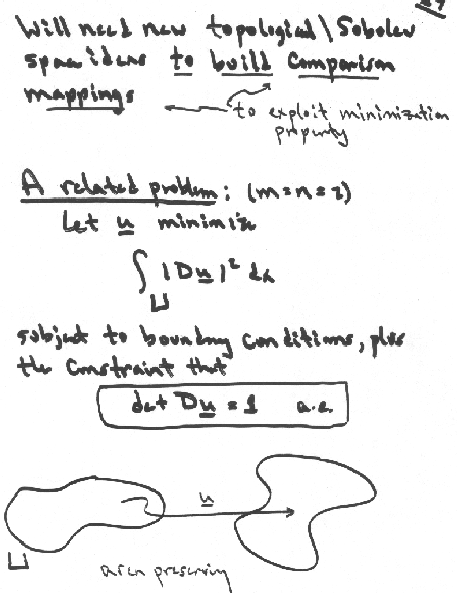 Will need new topological \ Sobolev
space ideas to build comparison
mappings
to exploit minimization
property
A related problem: (m=n=2)
Let u minimize
∫_U |Du|² dx
subject to boundary conditions, plus
the constraint that
det Du = 1 a.e.
u
U
area preserving